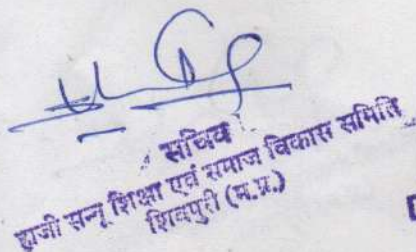 सचिव
हाजी सन्नू शिक्षा एवं समाज विकास समिति
शिवपुरी (म.प्र.)